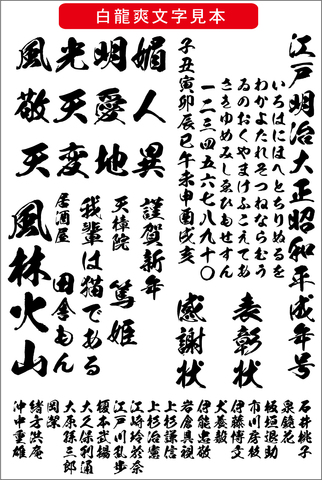 白龍爽文字見本
江戸明治大正昭和平成年号
いろはにほへとちりぬるを
わかよたれそつねならむう
ゐのおくやまけふこえてあ
さきゆめみしゑひもせすん
一二三四五六七八九十〇
子丑寅卯辰巳午未申酉戌亥
表彰状
感謝状
媚人異
明愛地
光天変
風敬天
謹賀新年
天樟院 篤姫
我輩は猫である
居酒屋 田舎もん
風林火山
石井桃子
泉鏡花
板垣退助
市川房枝
伊藤博文
犬養毅
伊能忠敬
岩倉具視
上杉謙信
上杉治憲
江崎玲於奈
江戸川乱歩
榎本武揚
大久保利通
大原孫三郎
岡潔
緒方洪庵
沖中重雄